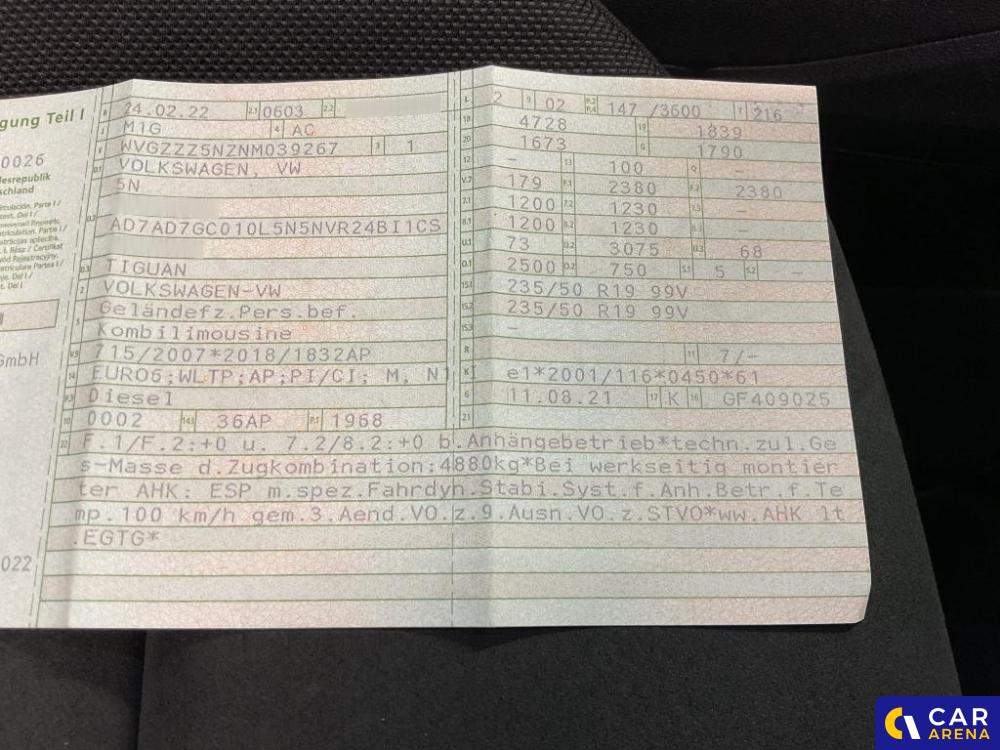 gung Teil I
0026
desrepublik
schland
GmbH
022
B 24.02.22 2.1 0603 2.2
J M1G 4 AC
E WVGZZZ5NZNM039267 3 1
D.1 VOLKSWAGEN, VW
5N
D.2 AD7AD7GC010L5N5NVR24BI1CS
D.3 TIGUAN
2 VOLKSWAGEN-VW
Geländefz.Pers.bef.
5 Kombilimousine
V.9 715/2007*2018/1832AP
14 EURO6;WLTP;AP;PI/CI; M, N1
P.3 Diesel
10 0002 14.1 36AP P.1 1968
L 2 9 02 P.2 P.4 147 /3600 T 216
18 4728 19 1839
20 1673 G 1790
12 – 13 100 Q
V.7 179 F.1 2380 F.2 2380
7.1 1200 7.2 1230 7.3
8.1 1200 8.2 1230 8.3
U.1 73 U.2 3075 U.3 68
O.1 2500 O.2 750 S.1 5 S.2 –
15.1 235/50 R19 99V
15.2 235/50 R19 99V
15.3 –
R 11 7/–
K e1*2001/116*0450*61
6 11.08.21 17 K 16 GF409025
21
22 F.1/F.2:+0 u. 7.2/8.2:+0 b.Anhängebetrieb*techn.zul.Ge
s-Masse d.Zugkombination:4880kg*Bei werkseitig montier
ter AHK: ESP m.spez.Fahrdyn.Stabi.Syst.f.Anh.Betr.f.Te
mp.100 km/h gem.3.Aend.VO.z.9.Ausn.VO.z.STVO*ww.AHK lt
.EGTG*
CAR
ARENA